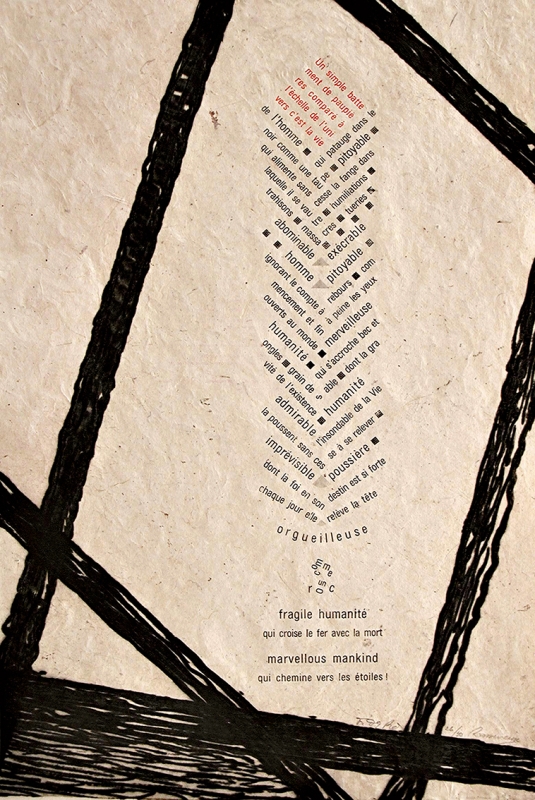 Un simple batte
ment de paupiè
res comparé à
l'échelle de l'uni
vers c'est la vie
de l'homme ■ qui patauge dans le
noir comme une tau pe ■ pitoyable ■
qui alimente sans cesse la fange dans
laquelle il se vau tre ■ humiliations ■
trahisons ■ massa cres ■ tueries ■
abominable exécrable ■
■ ■ homme pitoyable ■
ignorant le compte à rebours ■ com
mencement et fin à peine les yeux
ouverts au monde ■ merveilleuse
humanité ■ qui s'accroche bec et
ongles ■ grain de s able ■ dont la gra
vité de l'existence ■ humanité
admirable l'insondable de la Vie
la poussent sans ces se à se relever ■
imprévisible poussière ■
dont la foi en son destin est si forte
chaque jour elle relève la tête
orgueilleuse
comme
un
roc
fragile humanité
qui croise le fer avec la mort
marvellous mankind
qui chemine vers les étoiles !